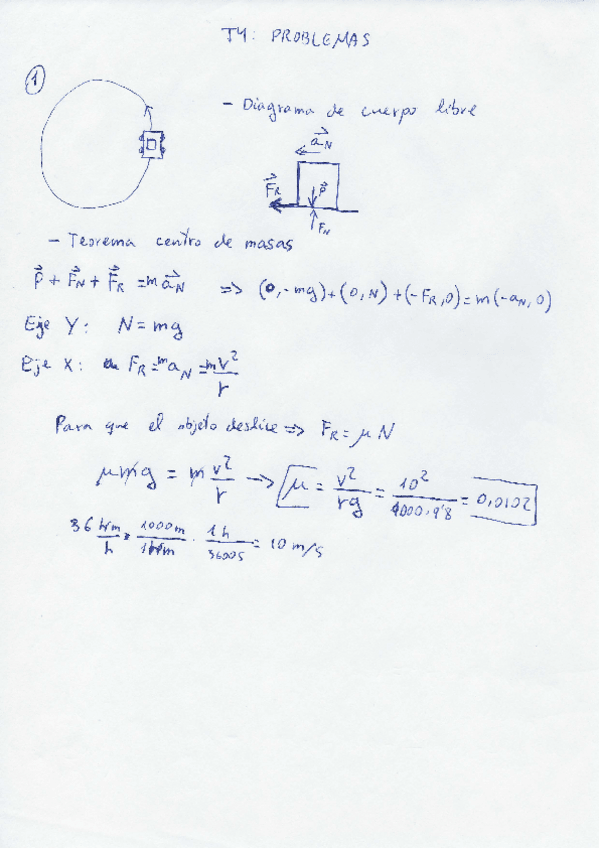 T4: PROBLEMAS
1
- Diagrama de cuerpo libre
a⃗_N
F⃗_R P⃗
F_N
- Teorema centro de masas
P⃗ + F⃗_N + F⃗_R = m a⃗_N => (0, -mg) + (0, N) + (-F_R, 0) = m(-a_N, 0)
Eje Y: N = mg
Eje X: F_R = m a_N = mv²/r
Para que el objeto deslice => F_R = μN
μmg = m v²/r → μ = v²/rg = 10²/(1000·9'8) = 0,0102
36 km/h · 1000m/1km · 1h/3600s = 10 m/s